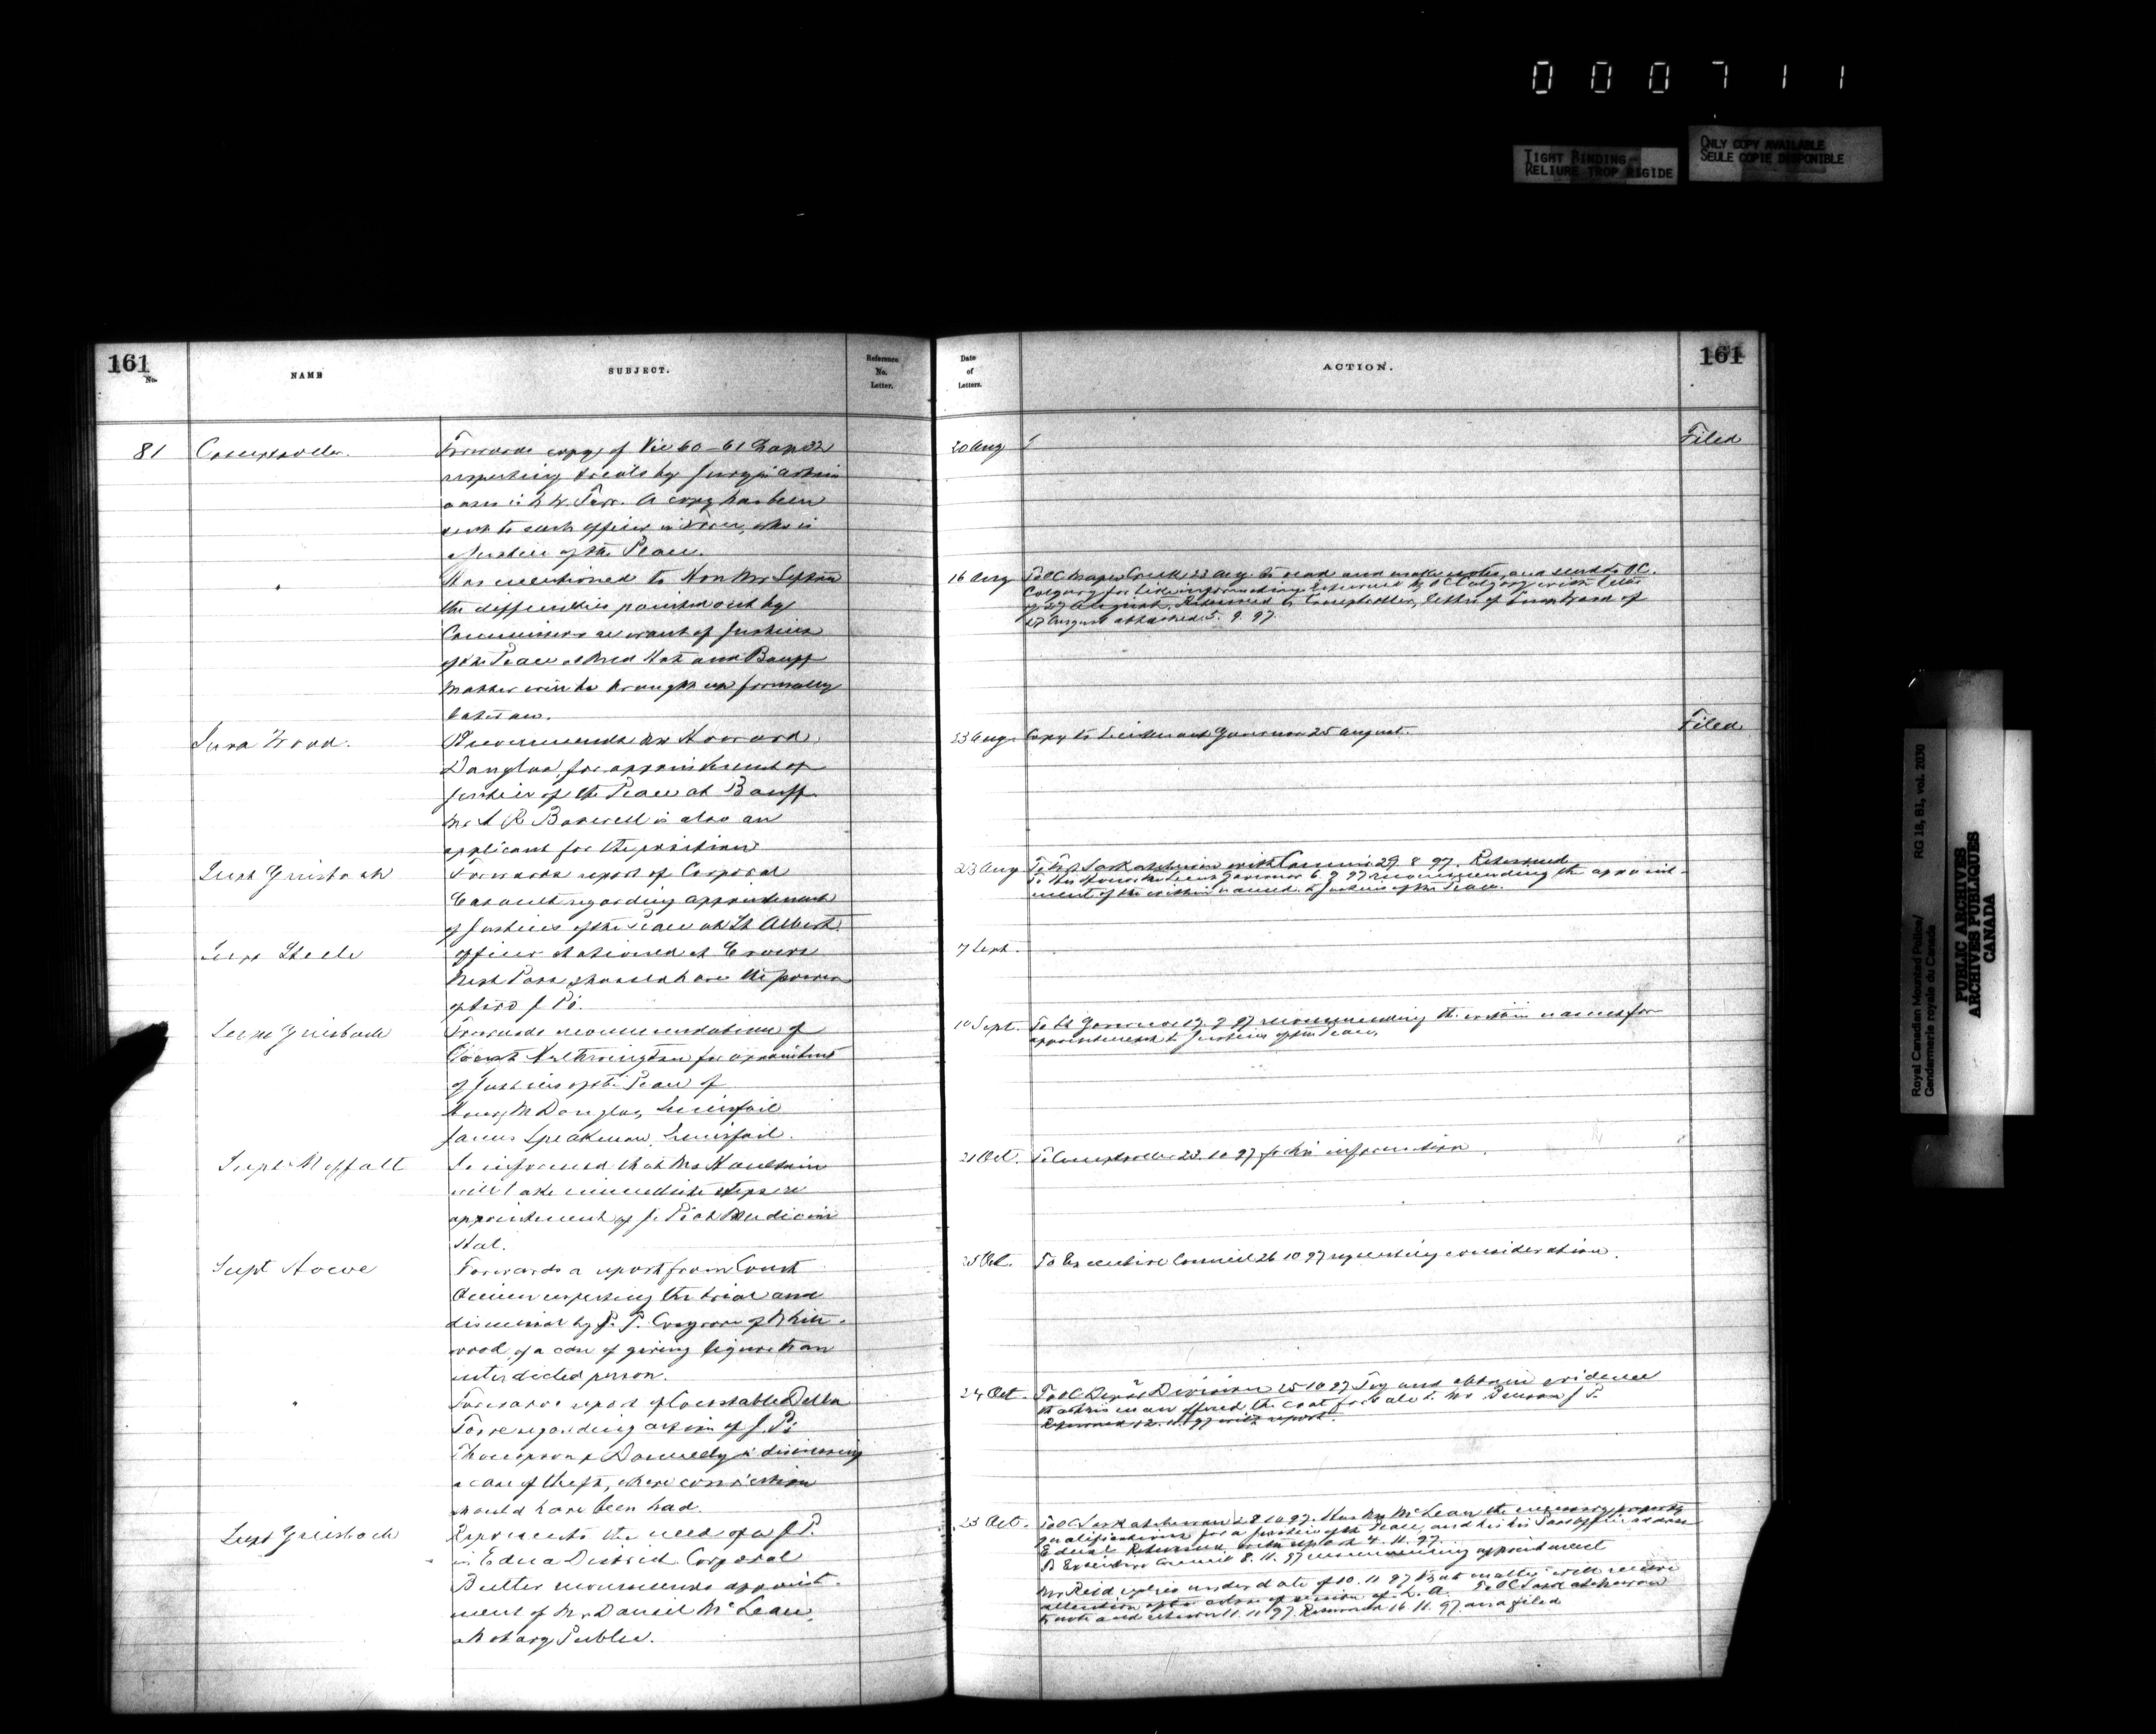 000711
TIGHT BINDING
RELIURE TROP RIGIDE
ONLY COPY AVAILABLE
SEULE COPIE DISPONIBLE
161
No.
NAME
SUBJECT.
Reference
No.
Letter.
81 Comptroller.
Forwards copy of Vic 60-61 Cap 32
respecting trials by Jury in certain
cases in N.W. Terr. A copy has been
sent to each officer in Force, who is
a Justice of the Peace.
"
Has mentioned to Hon Mr Sifton
the difficulties pointed out by
Commissioner re want of Justices
of the Peace at Med Hat and Banff
Matter will be brought up formally
later on.
Supt Wood.
Recommends Mr Howard
Douglas, for appointment of
Justice of the Peace at Banff.
Mr A R is also an
applicant for the position
Supt Griesbach
Forwards report of Corporal
regarding appointment
of Justices of the Peace at St Albert.
Supt Steele
Officer stationed at Crows
Nest Pass should have the power
of two J Ps.
Supt Griesbach
Forwards recommendation of
Const Hetherington for appointment
of Justices of the Peace of
Henry M Douglas, Innisfail
James Speakman, Innisfail.
Supt Moffatt
Is informed that Mr Haultain
will take immediate steps re
appointment of J. P. at Medicine
Hat.
Supt Howe
Forwards a report from Const
respecting the trial and
dismissal by J. P. of White-
wood, of a case of giving liquor to an
interdicted person.
"
Forwards report of Constable Della
Torre regarding action of J. Ps
Thompson & Donnelly in dismissing
a case of theft, where conviction
should have been had.
Supt Griesbach
Represents the need of a J.P.
in Edna District Corporal
Butler recommends appoint-
ment of Mr Daniel McLean,
a Notary Public.
Date
of
Letters.
ACTION.
161
20 Aug
Filed
16 Aug To OC Maple Creek 22 Aug. to read and make notes, and send to OC.
Calgary for like information. Returned by OC Calgary with letter
of 27 August. Returned to Comptroller, letter of Supt Wood of
27 August attached 5. 9. 97.
23 Aug. Copy to Lieutenant Governor 25 August.
Filed
23 Aug To OC Saskatchewan with 29 8 97. Returned
To His Honor the Lieut Governor 6. 9 97 recommending the appoint-
ment of the within named as Justices of the Peace.
7 Sept.
10 Sept. To Lt Governor 12. 9 97 recommending the within names for
appointment to Justices of the Peace.
21 Oct. To Comptroller 23. 10 97 for his information.
25 Oct. To Executive Council 26 10 97 requesting consideration.
24 Oct. To OC Depot Division 25 10 97 Try and obtain evidence
that this man offered the coat for sale to Mr J. P.
Returned 12. 11. 97 with report.
23 Oct. To OC Saskatchewan 28 10 97. Has Mr McLean the necessary property
qualifications for a Justice of the Peace, and his Post office address
Edna. Returned with report 4. 11. 97.
To Executive Council 8. 11. 97 recommending appointment
Mr Reid replies under date of 10. 11 97 that matter will receive
attention after close of session of L. A. To OC Saskatchewan
to note and return 11. 11 97. Returned 16 11. 97 and filed
Royal Canadian Mounted Police/
Gendarmerie royale du Canada
RG 18, B1, vol. 2030
PUBLIC ARCHIVES
ARCHIVES PUBLIQUES
CANADA